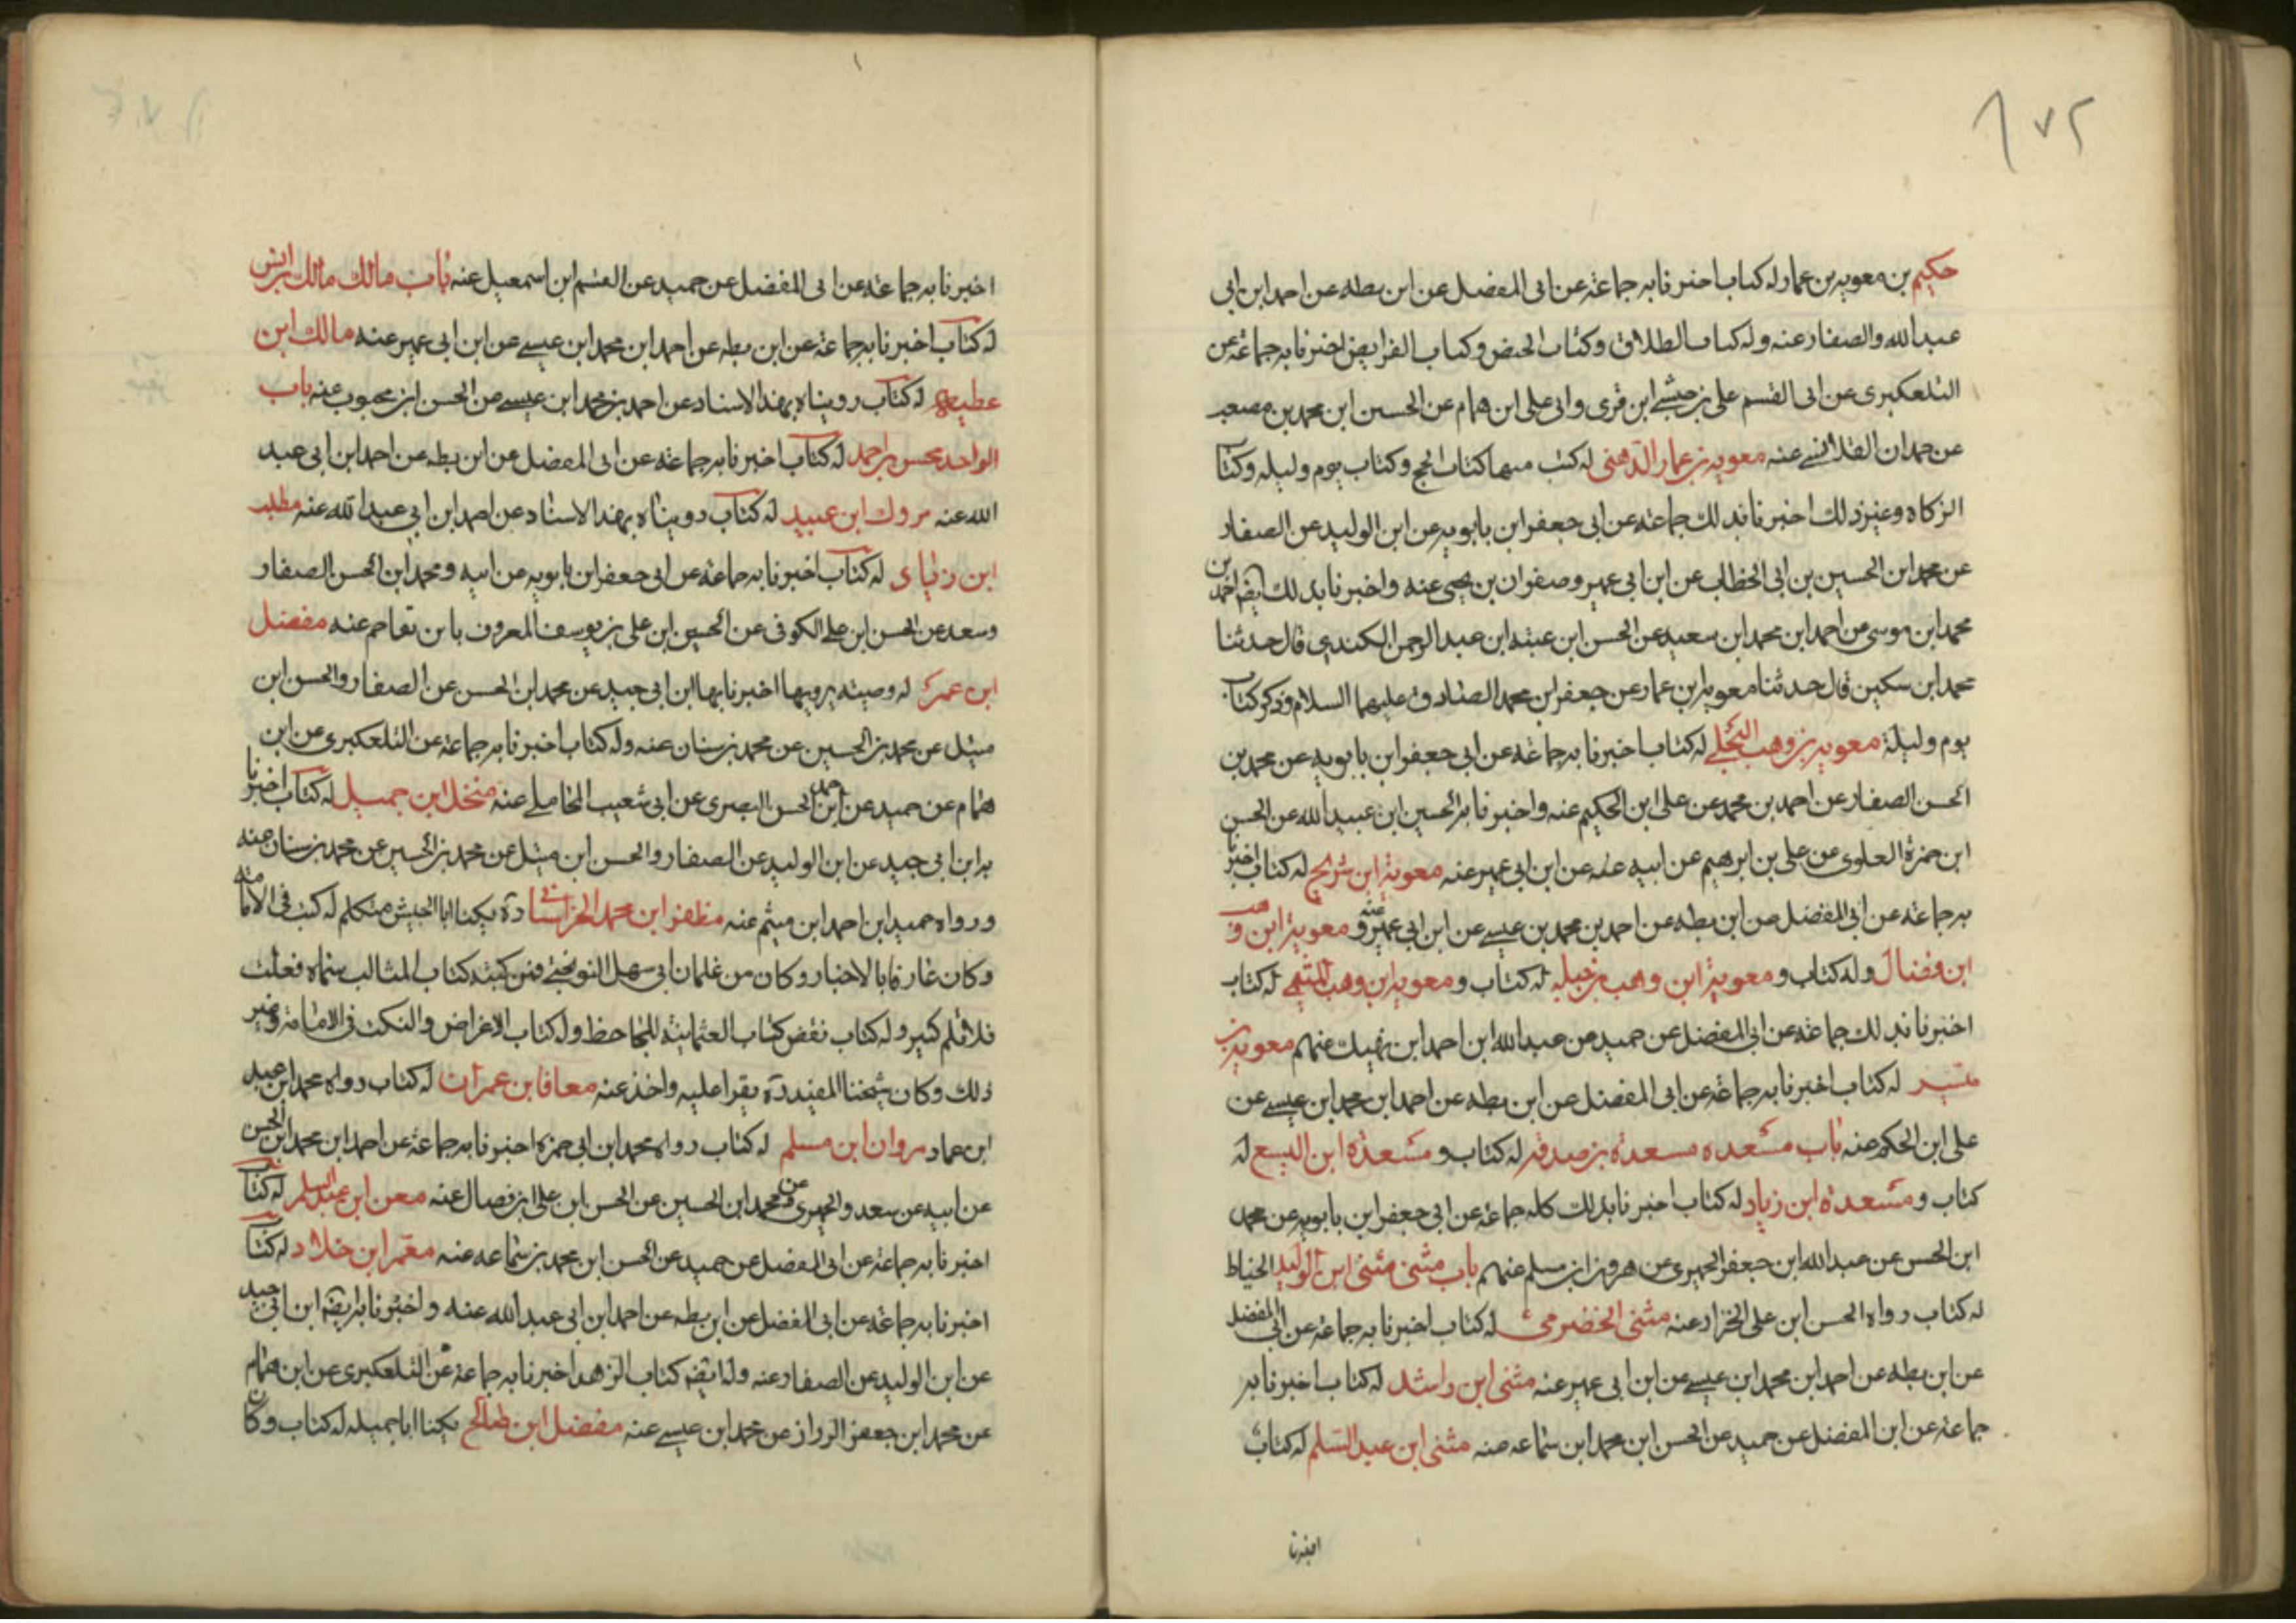 ١٧٢
حكيم بن معويه بن عمار له كتاب اخبرنا به جماعة عن ابى المفضل عن ابن بطه عن احمد ابن ابى
عبد الله والصفار عنه وله كتاب الطلاق وكتاب الحيض وكتاب الفرايض اخبرنا به جماعة عن
التلعكبرى عن ابى القسم على بن حبشى ابن قونى وابى على ابن همام عن الحسين ابن محمد بن مصعب
عن حمدان القلانسى عنه معويه بن عمار الدهنى له كتب منها كتاب الحج وكتاب يوم وليله وكتاب
الزكاه وغير ذلك اخبرنا بذلك جماعة عن ابى جعفر ابن بابويه عن ابن الوليد عن الصفار
عن محمد ابن الحسين بن ابى الخطاب عن ابن ابى عمير وصفوان بن يحيى عنه واخبرنا بذلك ايضا احمد بن
محمد ابن موسى عن احمد ابن محمد ابن سعيد عن الحسن ابن عتبه ابن عبد الرحمن الكندى قال حدثنا
محمد ابن سكين قال حدثنا معويه ابن عمار عن جعفر ابن محمد الصادق عليهما السلام وذكر كتاب
يوم وليلة معويه بن وهب البجلى له كتاب اخبرنا به جماعة عن ابى جعفر ابن بابويه عن محمد بن
الحسن الصفار عن احمد بن محمد عن على ابن الحكيم عنه واخبرنا به الحسين ابن عبيد الله عن الحسن
ابن حمزة العلوى عن على بن ابرهيم عن ابيه عنه عن ابن ابى عمير عنه معوية ابن شريح له كتاب اخبرنا
به جماعة عن ابى المفضل عن ابن بطه عن احمد بن محمد بن عيسى عن ابن ابى عمير عنه و معوية ابن
ابن فضال وله كتاب ومعوية ابن وهب بن جبله له كتاب و معويه ابن وهب الميثمى له كتاب
اخبرنا بذلك جماعة عن ابى المفضل عن حميد عن عبد الله ابن احمد ابن نهيك عنهم معويه بن
ميسر له كتاب اخبرنا به جماعة عن ابى المفضل عن ابن بطه عن احمد ابن محمد ابن عيسى عن
على ابن الحكم عنه باب مسعده مسعدة بن صدقه له كتاب و مسعدة ابن اليسع له
كتاب و مسعدة ابن زياد له كتاب اخبرنا بذلك كله جماعة عن ابى جعفر ابن بابويه عن محمد
ابن الحسن عن عبد الله ابن جعفر الحميرى عن هرون ابن مسلم عنهم باب مثنى مثنى ابن الوليد الخياط
له كتاب رواه الحسن ابن على الخزاز عنه مثنى الحضرمى له كتاب اخبرنا به جماعة عن ابى المفضل
عن ابن بطه عن احمد ابن محمد ابن عيسى عن ابن ابى عمير عنه مثنى ابن راشد له كتاب اخبرنا به
جماعة عن ابن المفضل عن حميد عن الحسن ابن محمد ابن سماعه عنه مثنى ابن عبد السلم له كتاب
اخبرنا
اخبرنا به جماعة عن ابى المفضل عن حميد عن القسم ابن اسمعيل عنه باب مالك مالك ابن انس
له كتاب اخبرنا به جماعة عن ابن بطه عن احمد ابن محمد ابن عيسى عن ابن ابى عمير عنه مالك ابن
عطيه له كتاب رويناه بهذا الاسناد عن احمد بن محمد ابن عيسى عن الحسن ابن محبوب عنه باب
الواحد محسن بن احمد له كتاب اخبرنا به جماعة عن ابى المفضل عن ابن بطه عن احمد ابن ابى عبد
الله عنه مروك ابن عبيد له كتاب رويناه بهذا الاسناد عن احمد ابن ابى عبد الله عنه مطلب
ابن زياد له كتاب اخبرنا به جماعة عن ابى جعفر ابن بابويه عن ابيه ومحمد ابن الحسن الصفار
وسعد عن الحسن ابن على الكوفى عن الحسين ابن على بن يوسف المعروف بابن بقاح عنه مفضل
ابن عمر له وصيته يرويها اخبرنا بها ابن ابى جيد عن محمد ابن الحسن عن الصفار والحسن ابن
متيل عن محمد بن الحسين عن محمد بن سنان عنه وله كتاب اخبرنا به جماعة عن التلعكبرى عن ابن
همام عن حميد عن احمد ابن الحسن البصرى عن ابى شعيب المحاملى عنه منخل ابن جميل له كتاب اخبرنا
به ابن ابى جيد عن ابن الوليد عن الصفار والحسن ابن متيل عن محمد بن الحسين عن محمد بن سنان عنه
ورواه حميد ابن احمد ابن ميثم عنه مظفر ابن محمد الخراسانى ره يكنا ابا الجيش متكلم له كتب فى الامامة
وكان عارفا بالاخبار وكان من غلمان ابى سهل النوبختى فمن كتبه كتاب المثالب سماه فعلت
فلا تلم كبير وله كتاب نقض كتاب العثمانية للجاحظ وله كتاب الاغراض والنكت فى الامامة وغير
ذلك وكان شيخنا المفيد ره يقرا عليه واخذ عنه معافا بن عمران له كتاب رواه محمد ابن عبيد
ابن حماد مروان ابن مسلم له كتاب رواه محمد ابن ابى حمزه اخبرنا به جماعة عن احمد ابن محمد ابن الحسن
عن ابيه عن سعد والحميرى عن محمد ابن الحسين عن الحسن ابن على ابن فضال عنه معن ابن عبد السلم له كتاب
اخبرنا به جماعة عن ابى المفضل عن حميد عن الحسن ابن محمد بن سماعه عنه معمر ابن خلاد له كتاب
اخبرنا به جماعة عن ابى المفضل عن ابن بطه عن احمد ابن ابى عبد الله عنه واخبرنا به ايضا ابن ابى جيد
عن ابن الوليد عن الصفار عنه وله ايضا كتاب الزهد اخبرنا به جماعة عن التلعكبرى عن ابن همام
عن محمد ابن جعفر الرزاز عن محمد ابن عيسى عنه مفضل ابن صالح يكنا ابا جميله له كتاب وكان